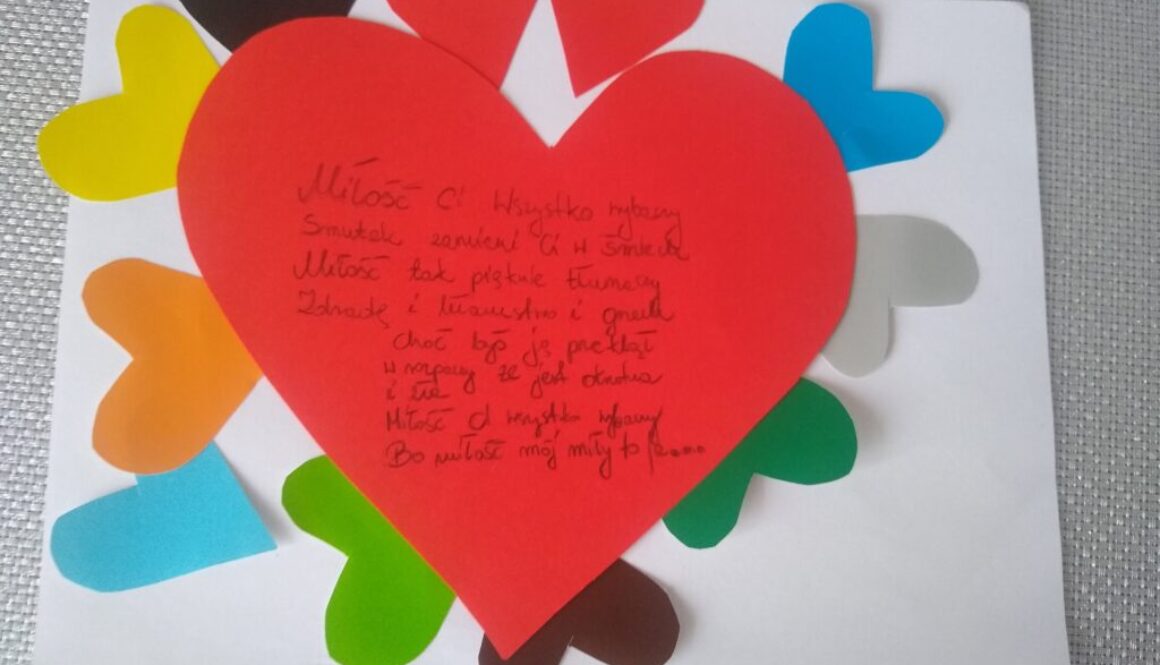 Miłość Ci wszystko wybaczy
Smutek zamieni Ci w śmiech
Miłość tak pięknie tłumaczy
Zdradę i kłamstwo i grzech
choć byś ją przeklął
w rozpaczy że jest okrutna
i zła
Miłość Ci wszystko wybaczy
Bo miłość mój miły to ja....